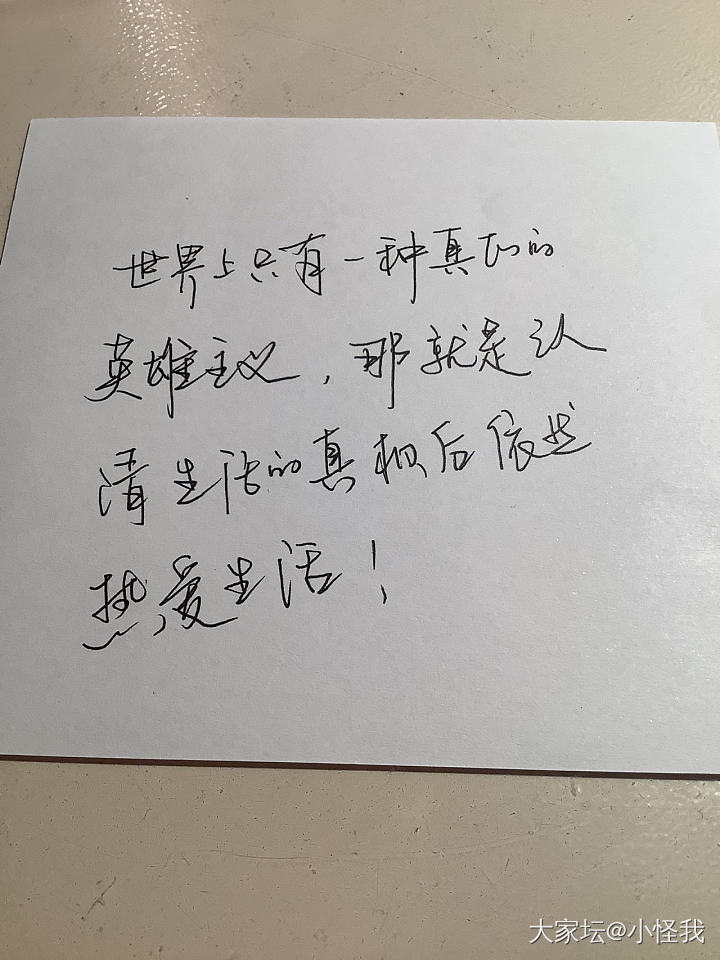 世界上只有一种真正的
英雄主义，那就是认
清生活的真相后依然
热爱生活！
大家坛@小怪我